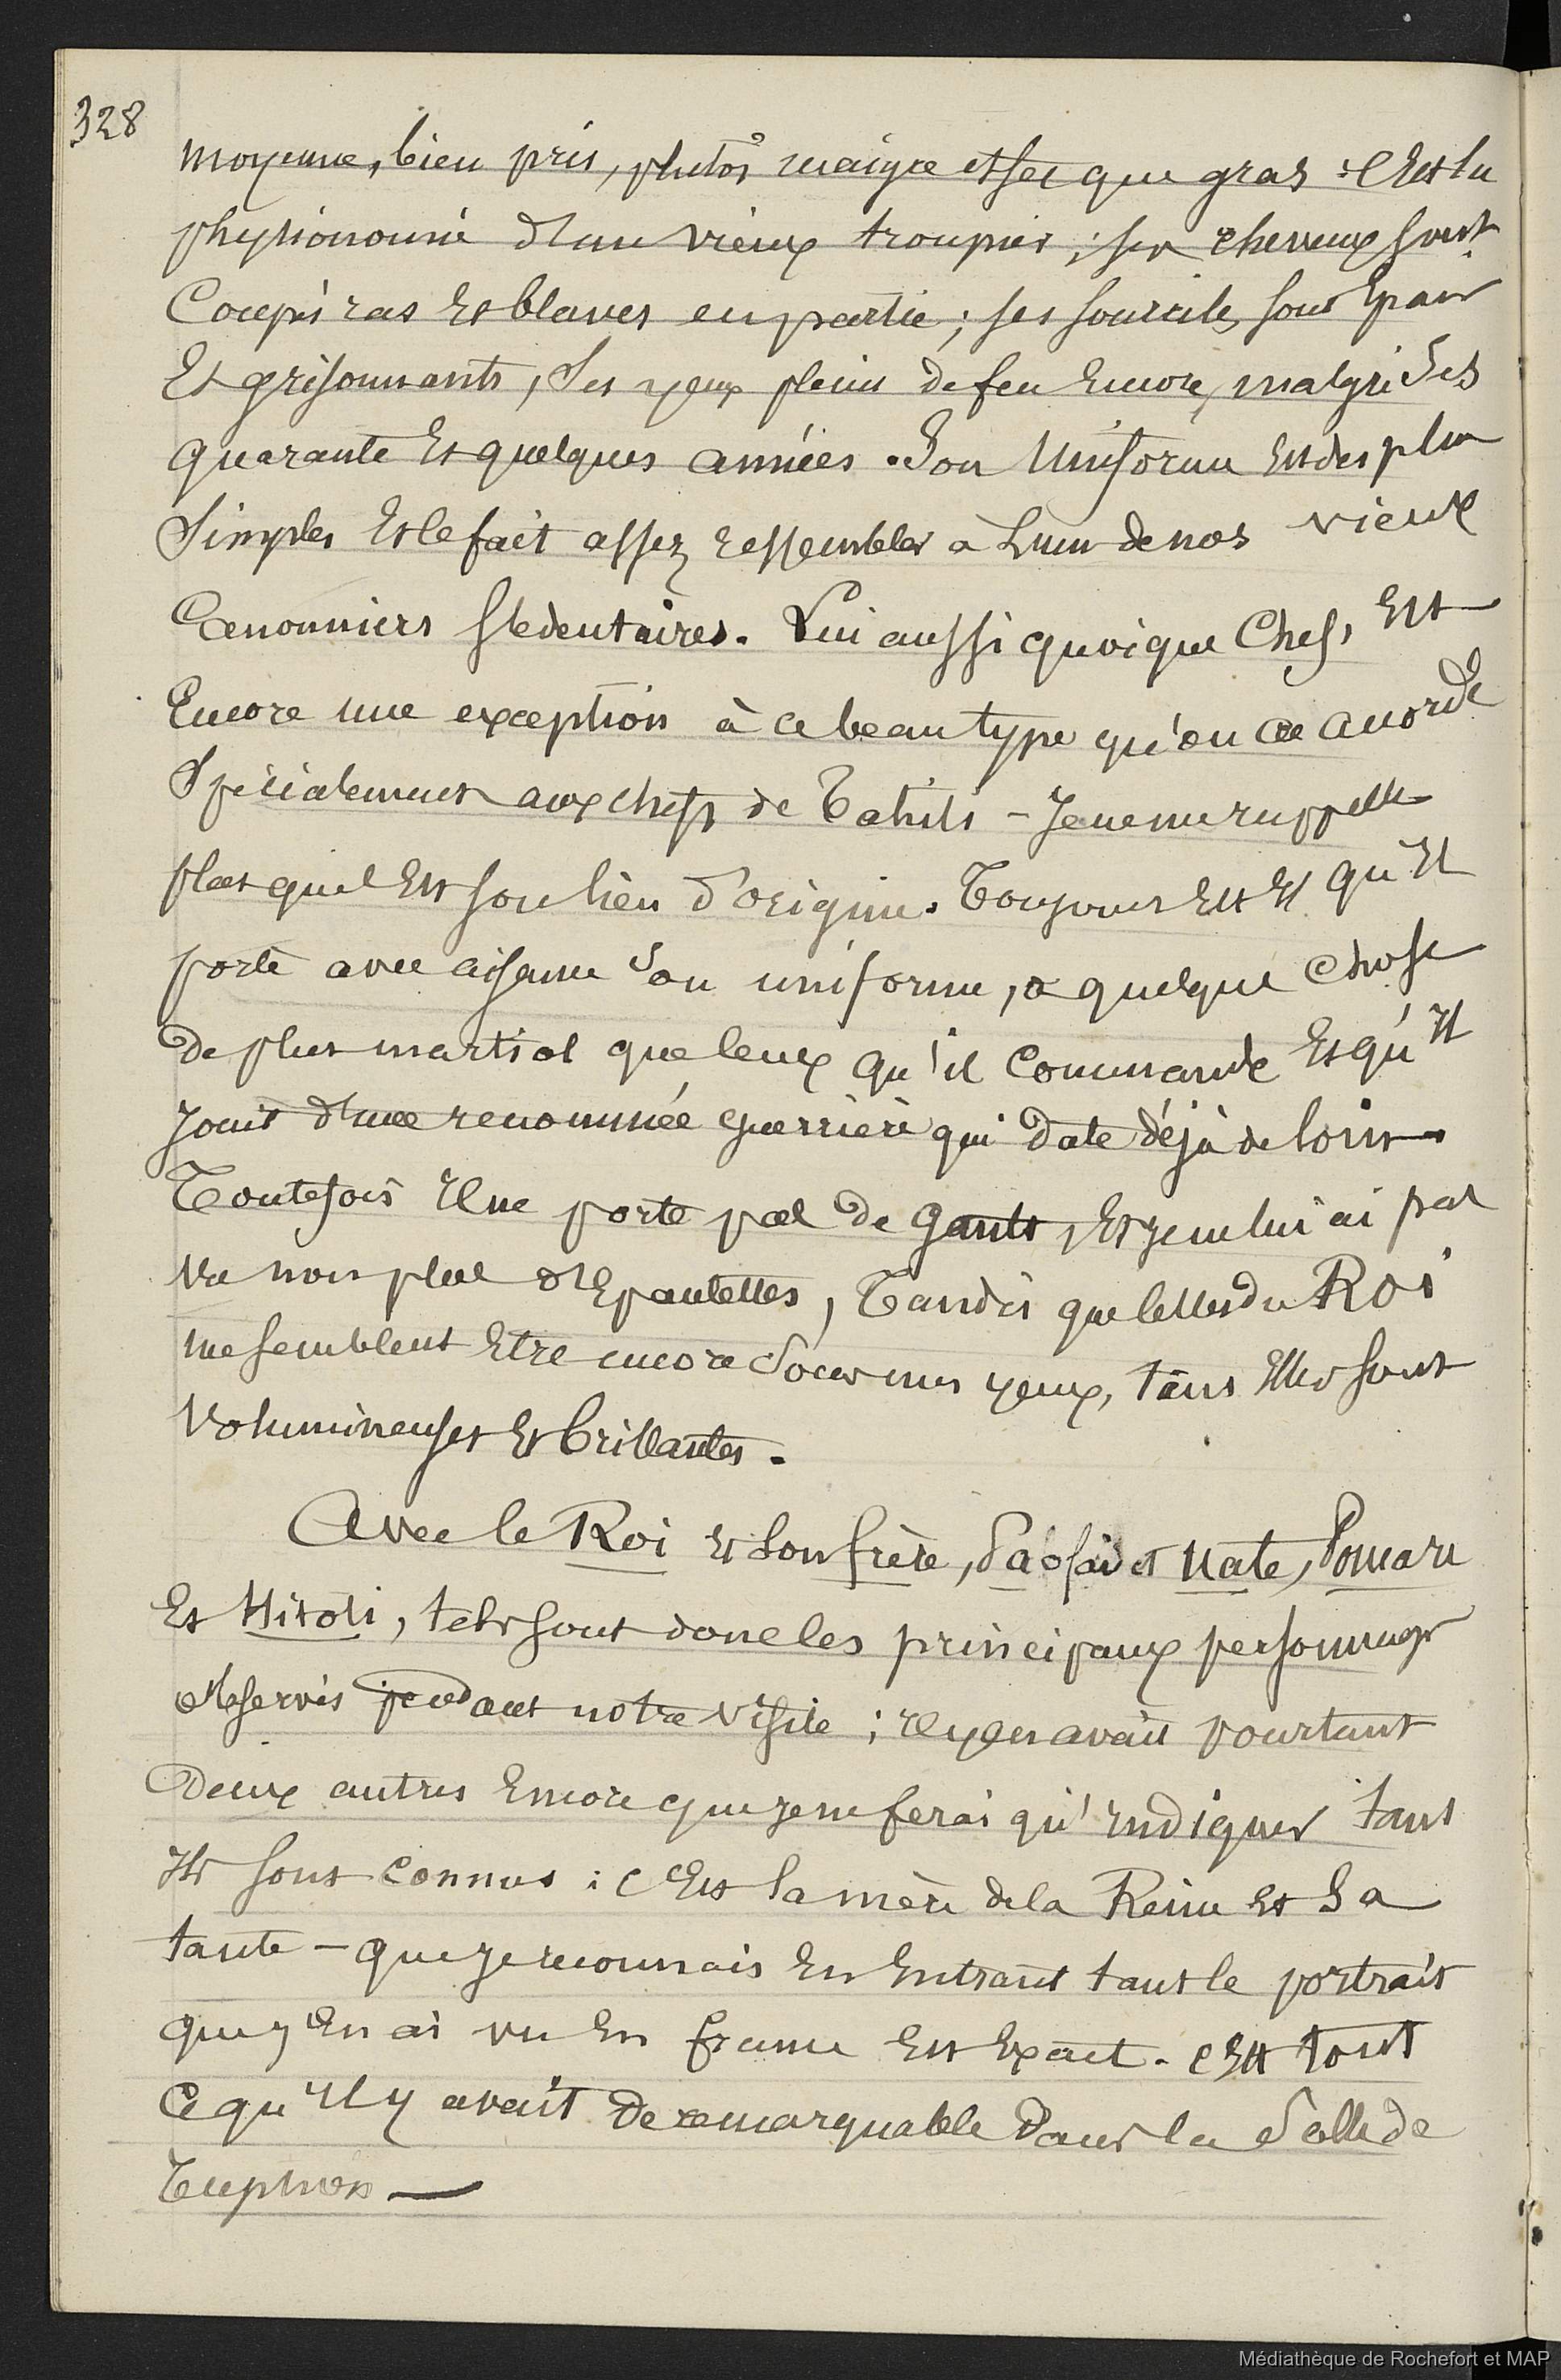 328
moyenne, bien pris, plutôt maigre et sec que gras : C'est la
physionomie d'un vieux troupier ; ses cheveux sont
Coupés ras Et blancs en partie ; ses sourcils sont Epais
Et grisonnants, Ses yeux pleins de feu Encore, malgré Ses
quarante Et quelques années. Son Uniforme Est des plus
Simples Et le fait assez ressembler à L'un de nos vieux
Canonniers Sédentaires. Lui aussi quoique Chef, Est
Encore une exception à ce beau type qu'on accorde
Spécialement aux chefs de Tahiti - Je ne me rappelle
plus quel Est son lieu d'origine. Toujours Est Il qu'Il
porte avec aisance son uniforme, a quelque chose
de plus martial que ceux qu'il Commande Et qu'Il
jouit d'une renommée guerrière qui date déjà de loin.
Toutefois Il ne porte pas de gants, Et je ne lui ai pas
vu non plus d'Epaulettes, Tandis que celles du Roi
me semblent Etre encore sous mes yeux, tant Elles sont
Volumineuses Et brillantes.
Avec le Roi et Son frère, et Nate, Pomare
Et Hitoti, tels sont donc les principaux personnages
observés pendant notre visite ; Il y en avait pourtant
Deux autres Encore que je ne ferai qu'Indiquer tant
Ils sont connus : C'Est la mère de la Reine Et Sa
tante - que je reconnais En Entrant tant le portrait
que j'En ai vu En france Est Exact. C'Est tout
Ce qu'Il y avait de remarquable Dans la Salle de